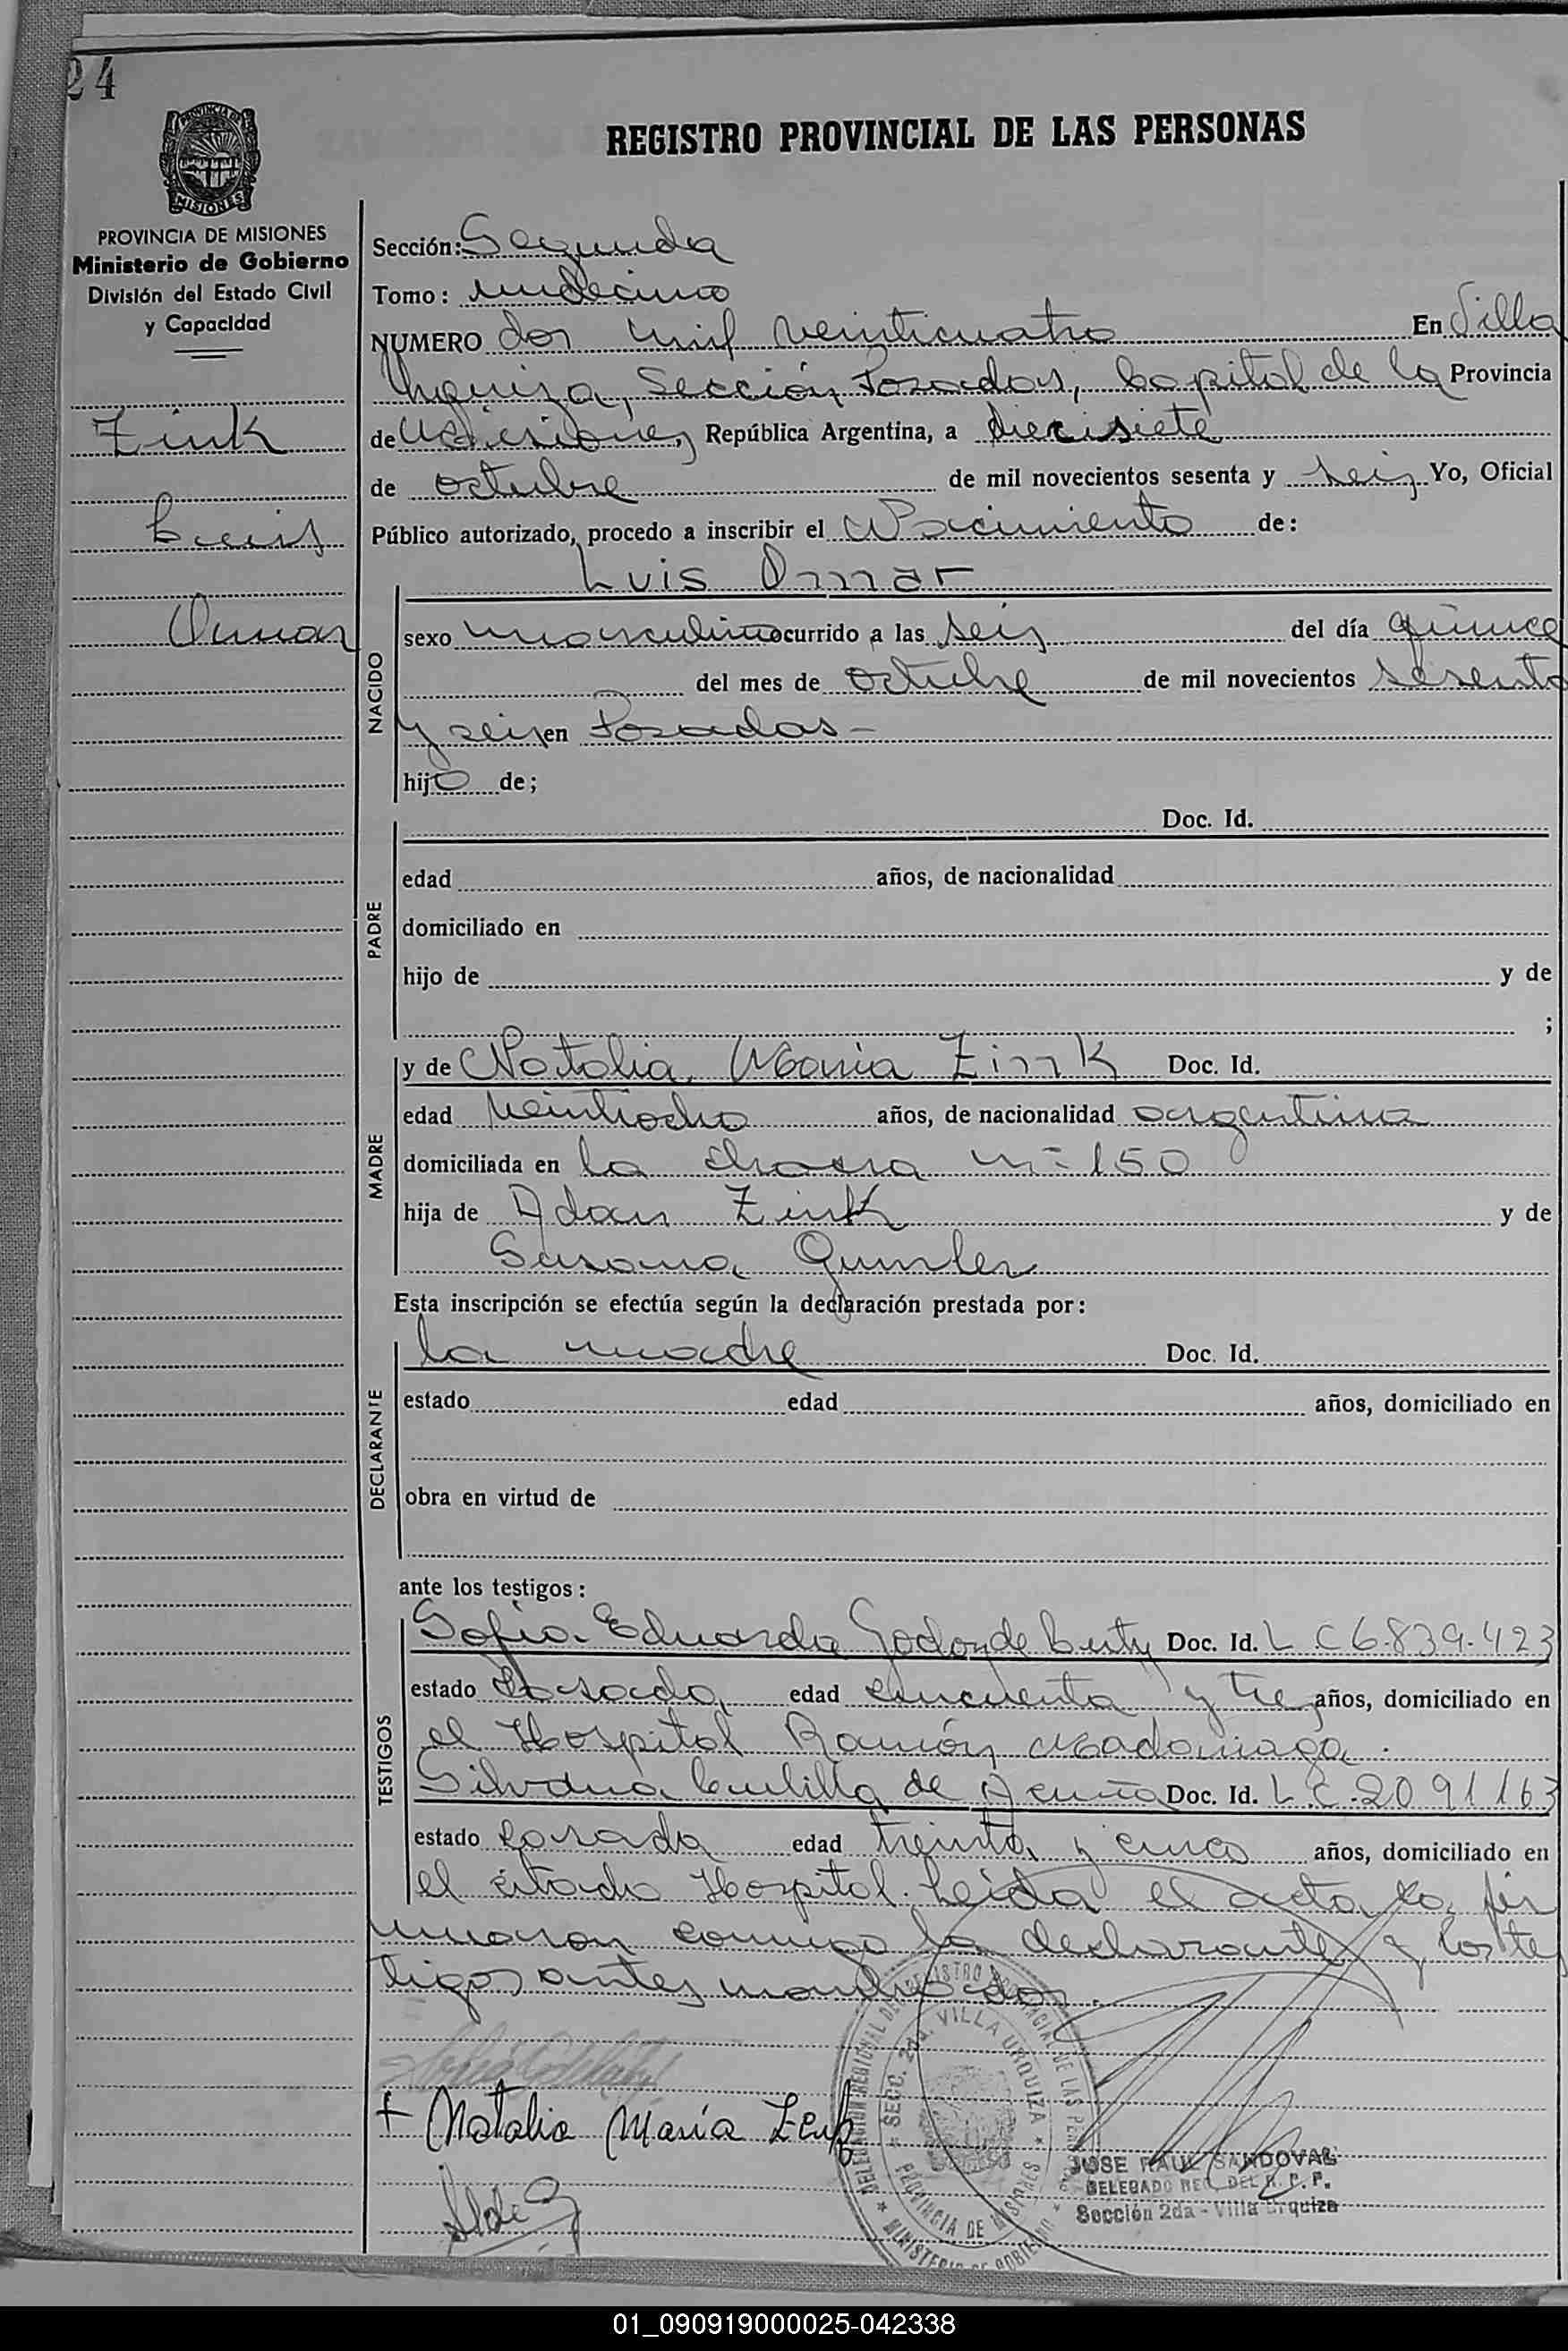 24
REGISTRO PROVINCIAL DE LAS PERSONAS
PROVINCIA DE MISIONES
MISIONES
PROVINCIA DE MISIONES
Ministerio de Gobierno
División del Estado Civil
y Capacidad
Zink
Luis
Omar
Sección: Segunda
Tomo: undécimo
NUMERO dos mil veinticuatro En Villa
Urquiza, Sección Posadas, Capital de la Provincia
de Misiones, República Argentina, a diecisiete
de octubre de mil novecientos sesenta y seis Yo, Oficial
Público autorizado, procedo a inscribir el Nacimiento de:
NACIDO
Luis Omar
sexo masculino ocurrido a las seis del día quince
del mes de octubre de mil novecientos sesenta
y seis en Posadas -
hijo de;
PADRE
Doc. Id.
edad años, de nacionalidad
domiciliado en
hijo de y de
;
MADRE
y de Natalia Maria Zink Doc. Id.
edad veintiocho años, de nacionalidad argentina
domiciliada en la chacra n° 150
hija de Adan Zink y de
Susana Gumler
Esta inscripción se efectúa según la declaración prestada por:
DECLARANTE
la madre Doc. Id.
estado edad años, domiciliado en
obra en virtud de
ante los testigos:
TESTIGOS
Sofia Eduarda Godoy de Doc. Id. L C 6.839.423
estado Casada edad cincuenta y tres años, domiciliado en
el Hospital Ramón Madariaga.
Silvana de Acuña Doc. Id. L.C. 2091163
estado Casada edad treinta y cinco años, domiciliado en
el citado Hospital. Leida el acta, la fir
maron conmigo la declarante y los tes
tigos antes mencionados.
+ Natalia María Zenk
DELEGACION REGIONAL DEL REGISTRO PROVINCIAL DE LAS PERSONAS
SECC. 2da. VILLA URQUIZA
PROVINCIA DE MISIONES
MINISTERIO DE GOBIERNO
JOSE RAUL SANDOVAL
DELEGADO REG. DEL R. P. P.
Sección 2da - Villa Urquiza
01_090919000025-042338